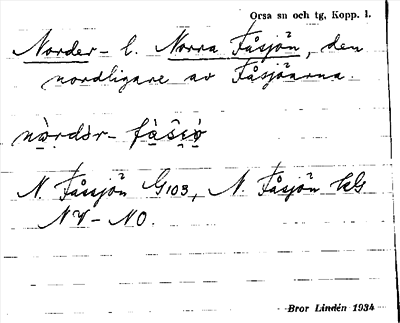 Orsa sn och tg, Kopp. l.
Norder- l. Norra Fåsjön, den
nordligare av Fåsjöarna.
N. Fåssjön G103, N. Fåsjön kG
NV-NO.
Bror Lindén 1934